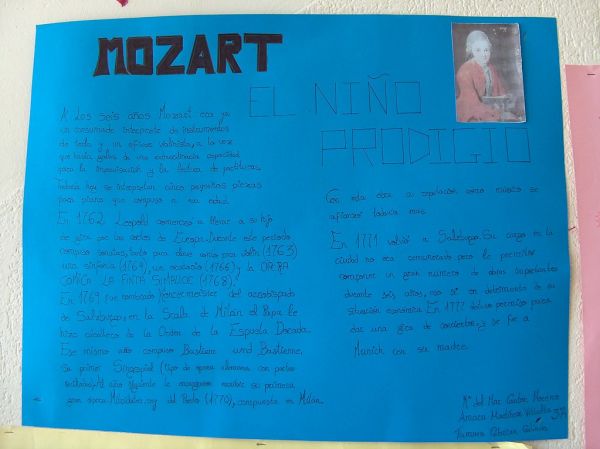 MOZART
EL NIÑO
PRODIGIO
A los seis años Mozart era ya
un consumado intérprete de instrumentos
de tecla y un eficaz violinista, a la vez
que hacía gala de una extraordinaria capacidad
para la improvisación y la lectura de partituras.
Todavía hoy se interpretan cinco pequeñas piezas
para piano que compuso a esa edad.
En 1762 Leopold comenzó a llevar a su hijo
de gira por las cortes de Europa. Durante este período
compuso sonatas, tanto para clave como para violín (1763)
una sinfonía (1764), un oratorio (1766), y la OPERA
COMICA LA FINTA SIMPLICE (1768).
En 1769 fue nombrado Konzertmeister del arzobispado
de Salzburgo, en la Scalla de Milán el Papa le
hizo caballero de la Orden de la Espuela Dorada.
Ese mismo año compuso Bastiene und Bastienne.
Su primer Singespiel (tipo de opera alemana con partes
recitadas). Al año siguiente le encargaron escribir su primera
gran ópera Mitridate, rey del Ponto (1770), compuesta en Milán.
Con esta obra su reputación como músico se
afianzó todavía más.
En 1771 volvió a Salzburgo. Su cargo en la
ciudad no era remunerado pero le permitió
componer un gran número de obras importantes
durante seis años, eso sí en detrimento de su
situación económica. En 1777 obtuvo permiso para
dar una gira de conciertos, y se fue a
Munich con su madre.
Mª del Mar
Amara Martínez 3ºA
Tamara